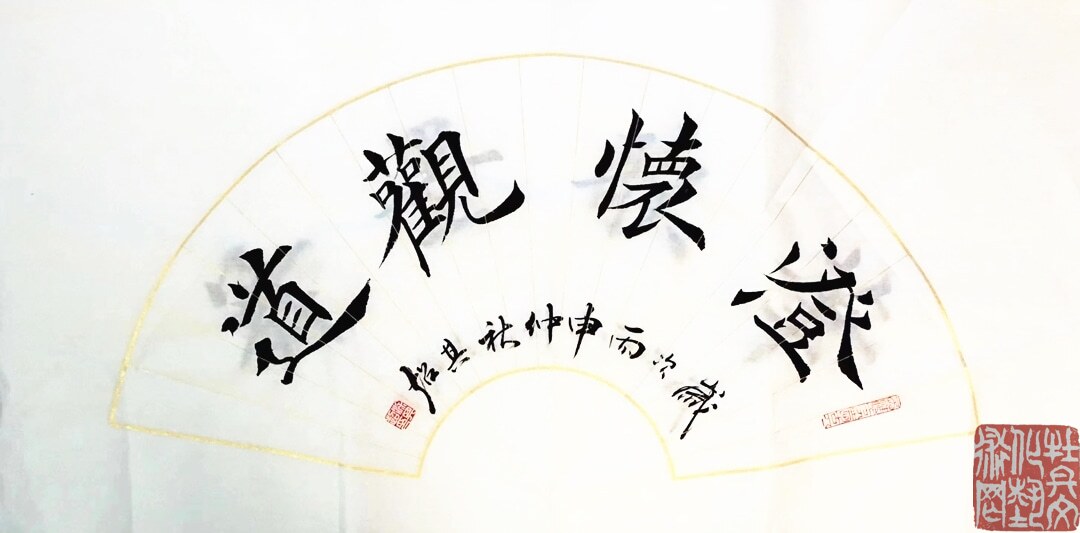 澄懷觀道
歲次丙申仲秋其